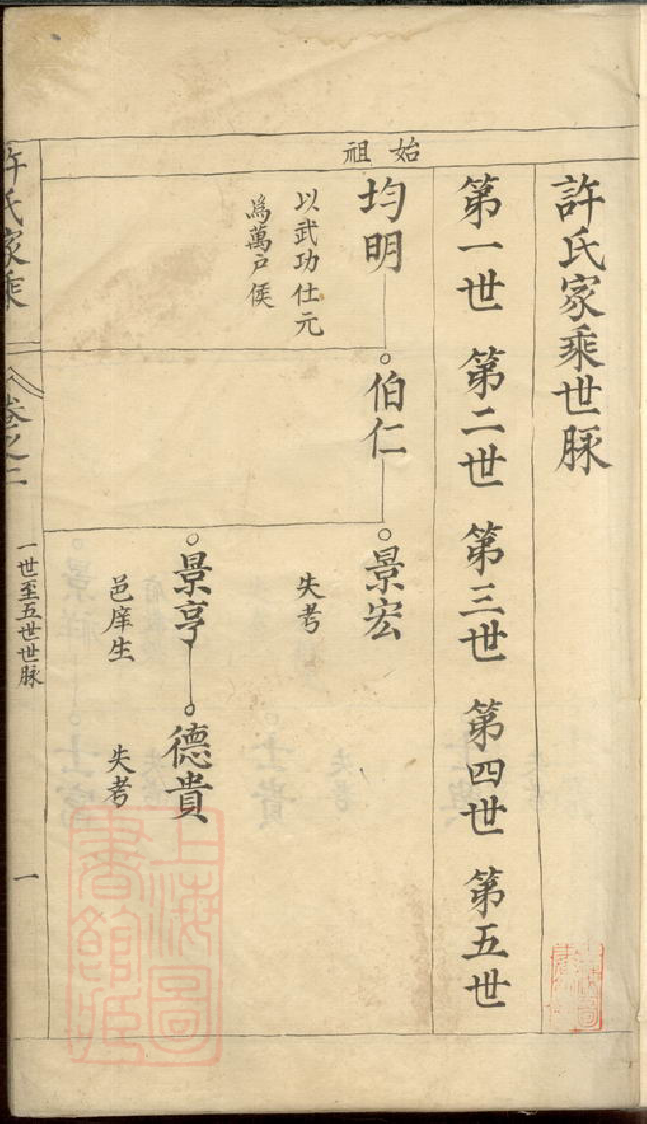 許氏家乘世脉
第一世 第二世 第三世 第四世 第五世
始祖
均明
以武功仕元
為萬戶侯
伯仁
景宏
失考
景亨
邑庠生
德貴
失考
許氏家乘
卷之二
一世至五世世脉
一
上海圖書館藏